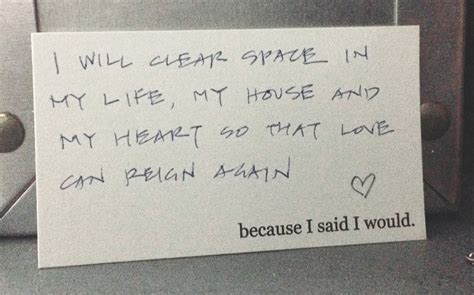 I WILL CLEAR SPACE IN
MY LIFE, MY HOUSE AND
MY HEART SO THAT LOVE
CAN REIGN AGAIN
because I said I would.